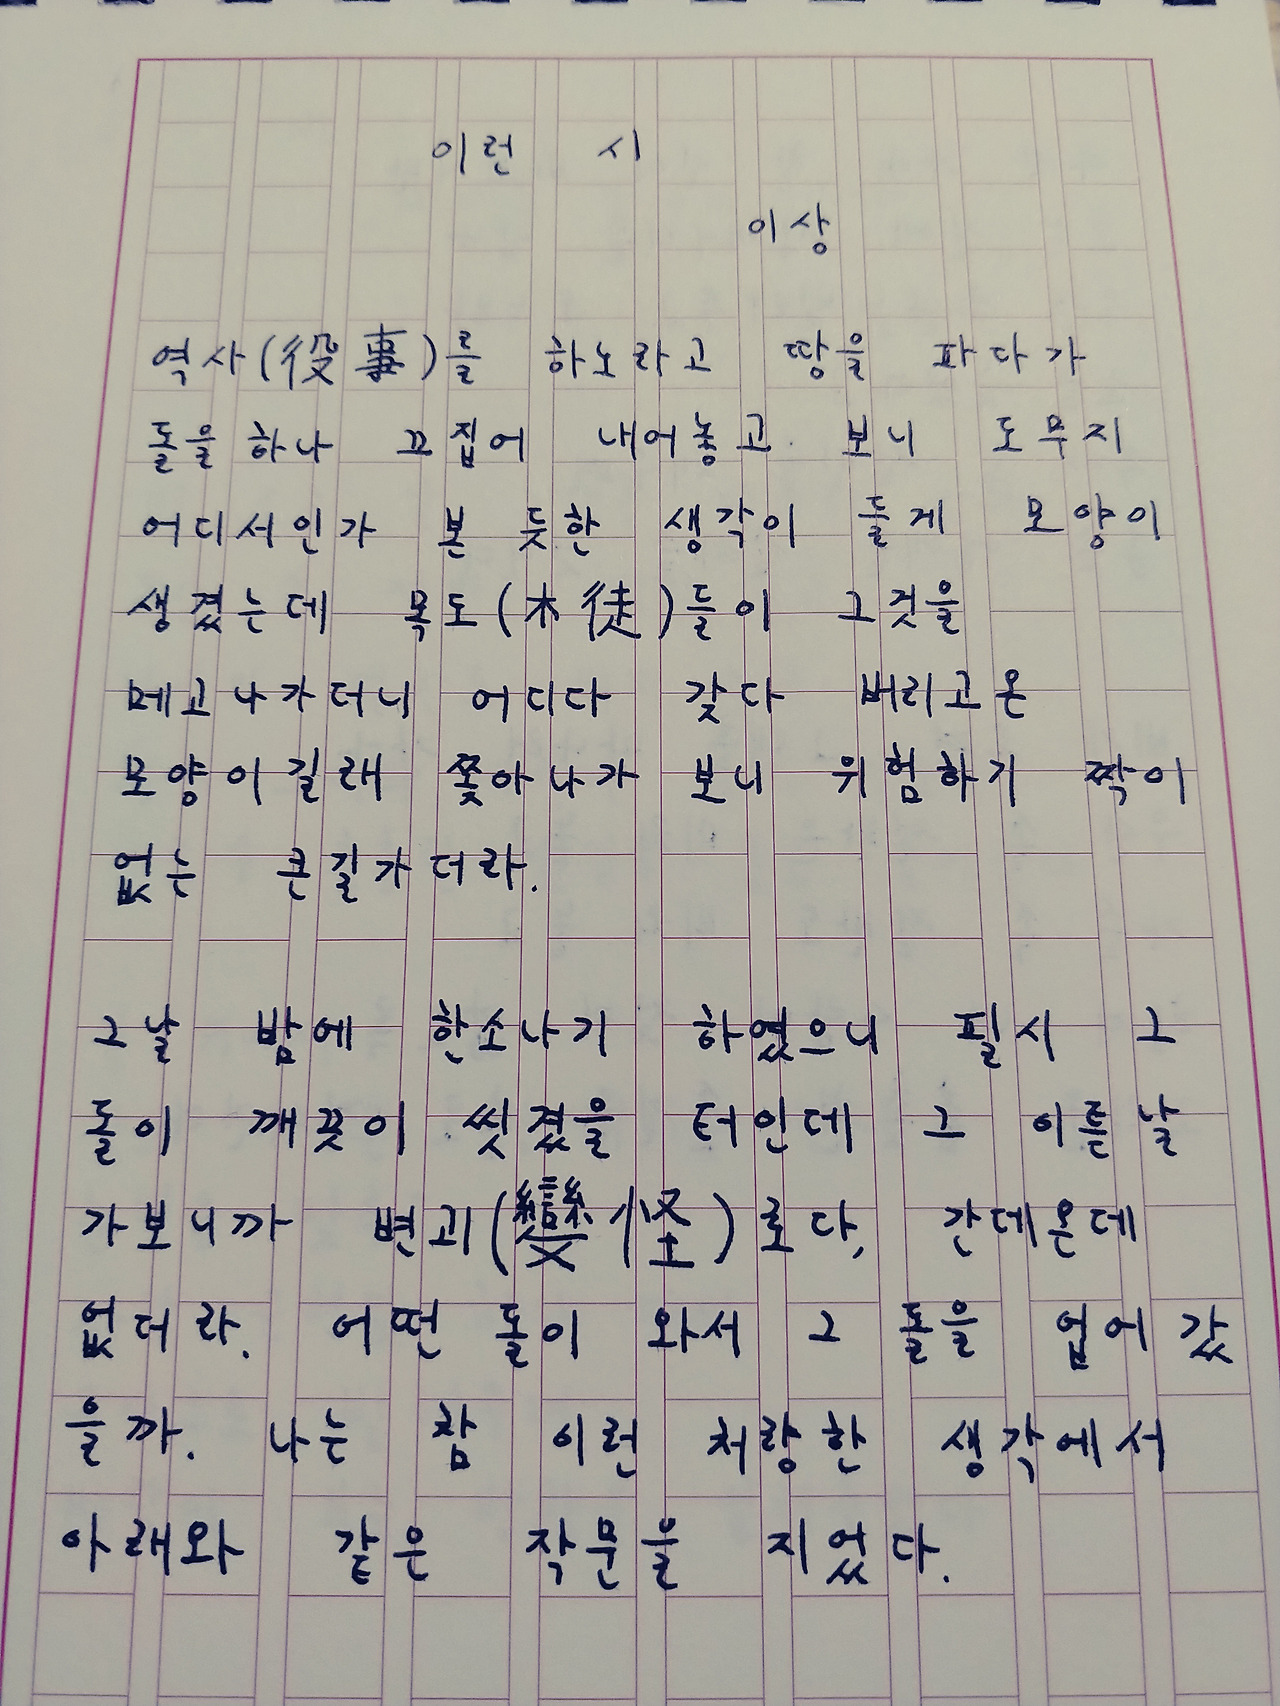 이런 시
이상
역사(役事)를 하노라고 땅을 파다가
돌을 하나 끄집어 내어놓고 보니 도무지
어디서인가 본 듯한 생각이 들게 모양이
생겼는데 목도(木徒)들이 그것을
메고 나가더니 어디다 갖다 버리고 온
모양이길래 쫓아나가 보니 위험하기 짝이
없는 큰길가더라.
그날 밤에 한소나기 하였으니 필시 그
돌이 깨끗이 씻겼을 터인데 그 이튿날
가보니까 변괴(變怪)로다, 간데온데
없더라. 어떤 돌이 와서 그 돌을 업어 갔
을까. 나는 참 이런 처량한 생각에서
아래와 같은 작문을 지었다.